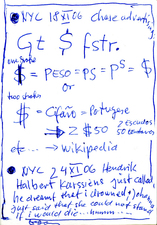 NYC 18 XI 06 chase advertising
Gt $ fstr.
one stroke
$ = PESO = PS = P^S = $
or
two strokes
$ = Cifrão = Portuguese
→ 2 $ 50 2 escudos 50 centavos
etc... → wikipedia
NYC 24 XI 06 Hendrik
Halbert Karssiens just called,
he dreamt that i drowned,
just said that she could not stand
i would die...hmmm...